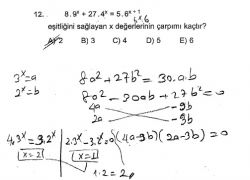 12. 8.9ˣ + 27.4ˣ = 5.6ˣ⁺¹
6ˣ.6
eşitliğini sağlayan x değerlerinin çarpımı kaçtır?
A) 2 B) 3 C) 4 D) 5 E) 6
3ˣ=a
2ˣ=b
8a²+27b²=30.a.b
8a²-30ab+27b²=0
4a -9b
2a -3b
4.3ˣ=9.2ˣ
x=2
2.3ˣ-3.2ˣ=0
x=1
(4a-9b)(2a-3b)=0
1.2=2